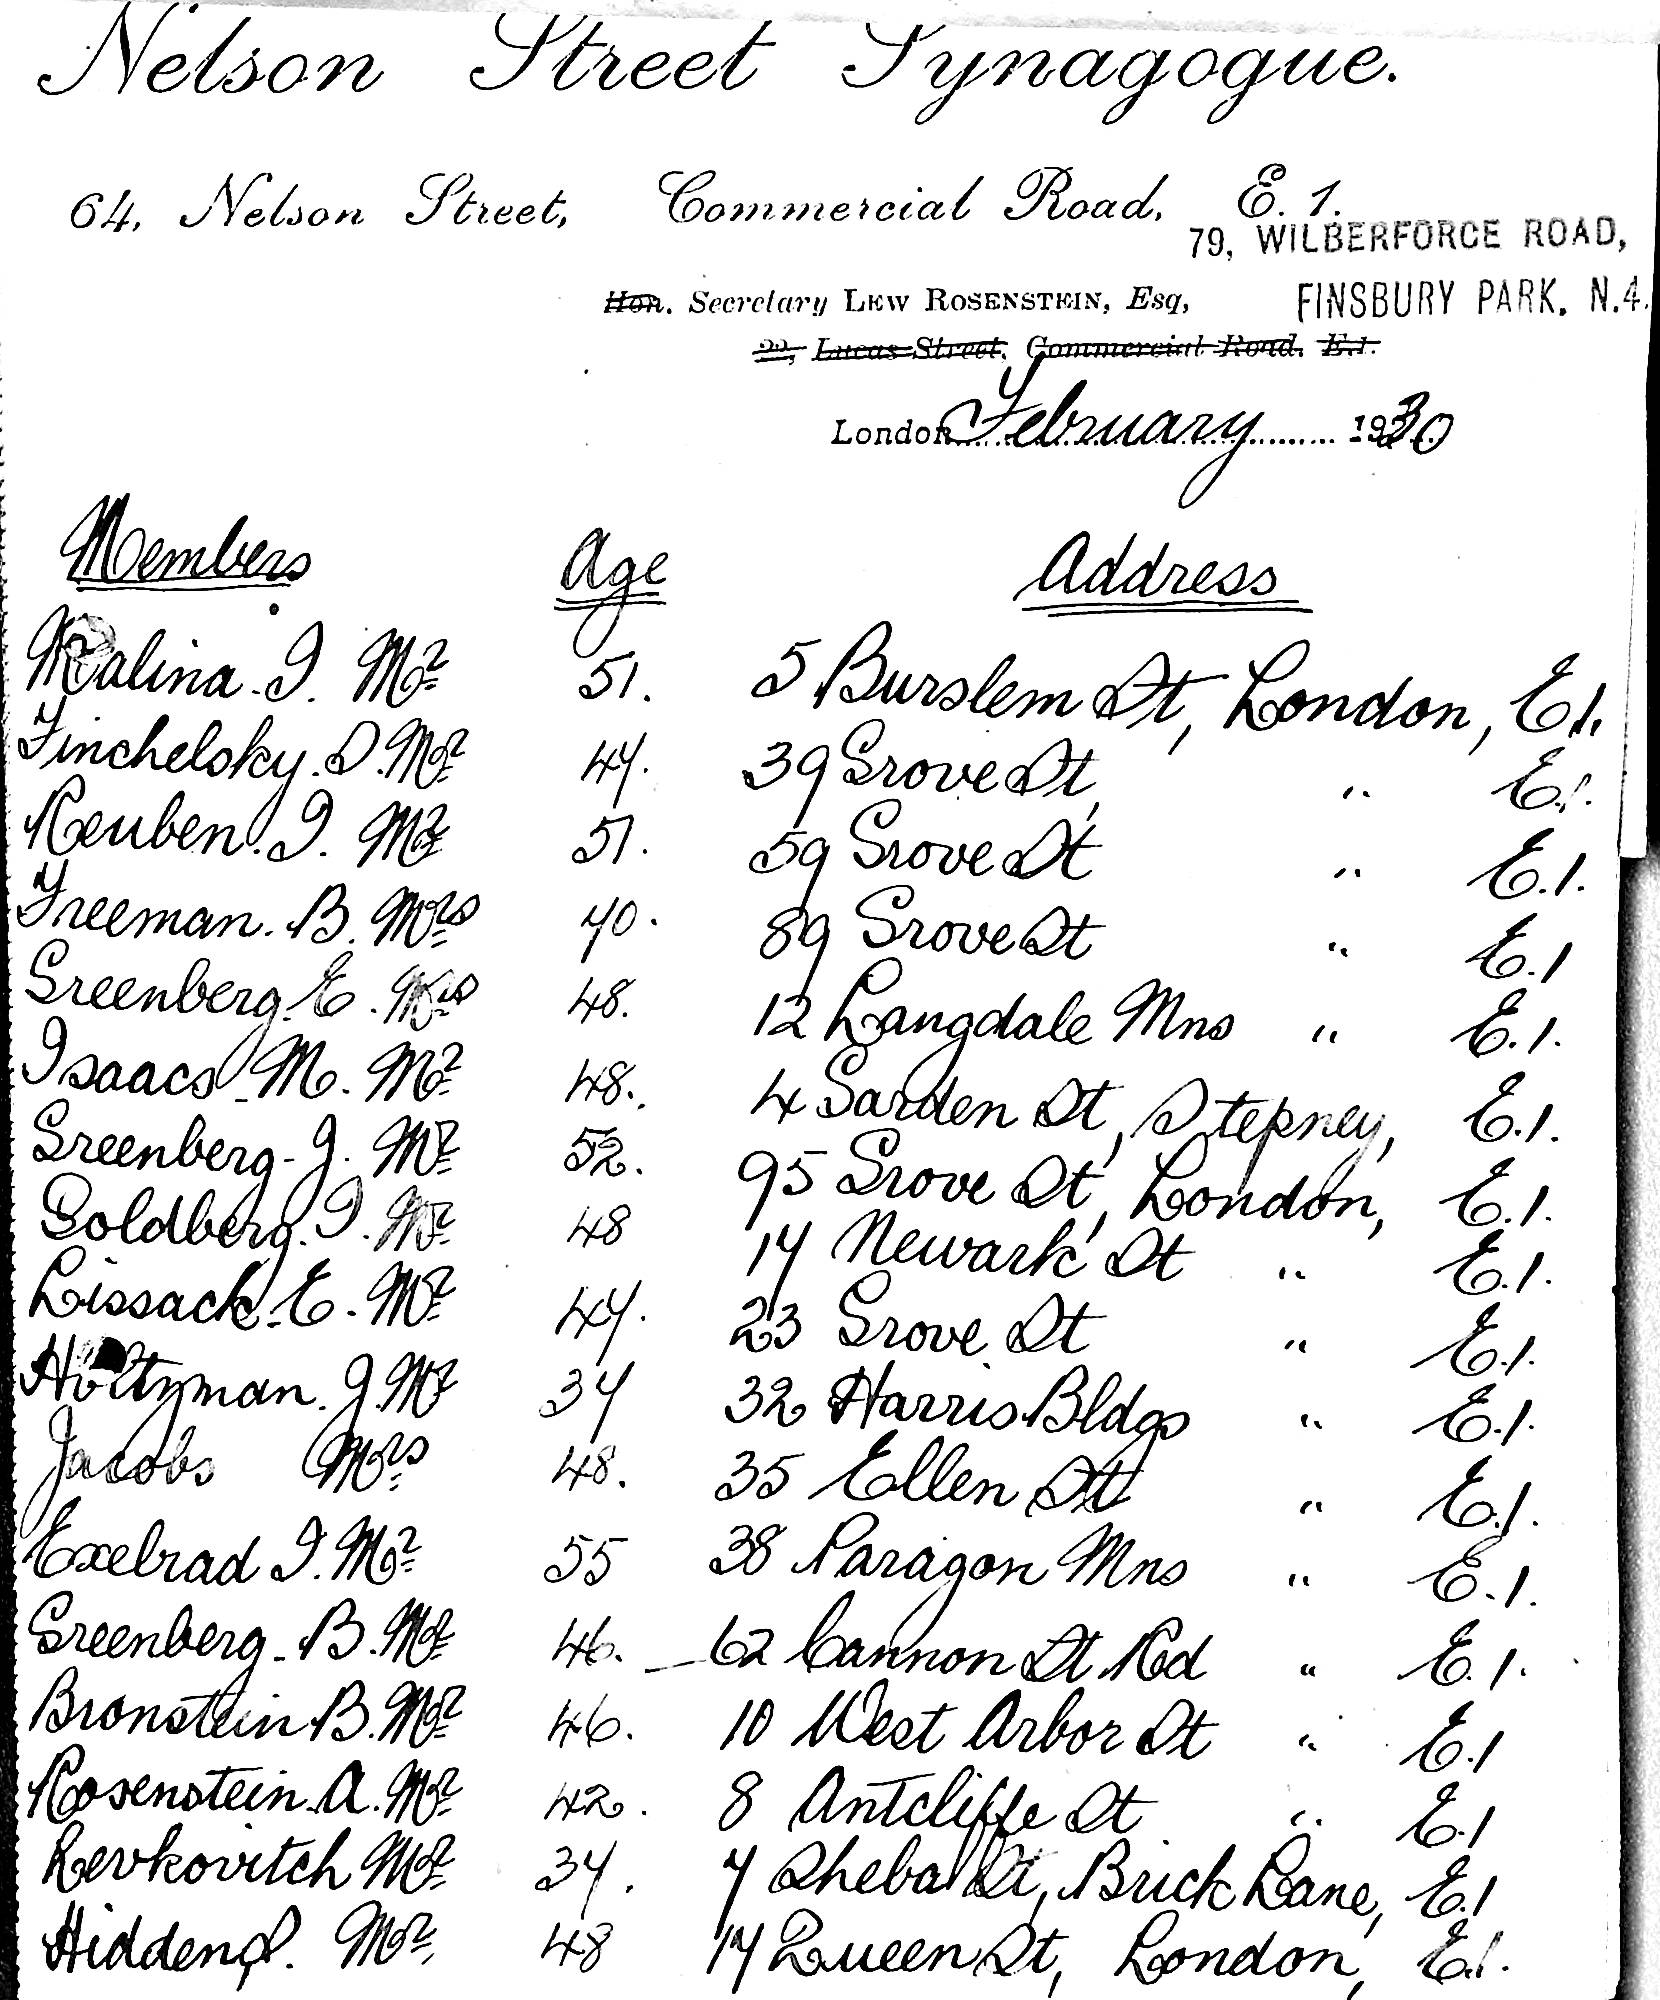 Nelson Street Synagogue.
64, Nelson Street, Commercial Road, E. 1.
79, WILBERFORCE ROAD,
Hon. Secretary LEW ROSENSTEIN, Esq,
FINSBURY PARK. N.4.
22, Lucas Street, Commercial Road, E.1.
London February 1930
Members Age Address
Malina. I. Mr 51. 5 Burslem St, London, E.1.
Finchelsky. S. Mr 47. 39 Grove St, " E.1.
Reuben. I. Mr 51. 59 Grove St " E.1.
Freeman. B. Mrs 70. 89 Grove St " E.1
Greenberg. E. Mrs 48. 12 Langdale Mns " E.1.
Isaacs - M. Mr 48. 4 Garden St, Stepney, E.1.
Greenberg - J. Mr 52. 95 Grove St, London, E.1.
Goldberg. I. Mr 48 17 Newark St " E.1.
Lissack - E. Mr 47. 23 Grove St " E.1.
Holtzman. J. Mr 37 32 Harris Bldgs " E.1.
Jacobs Mrs 48. 35 Ellen St " E.1.
Exelrad I. Mr 55 38 Paragon Mns " E.1.
Greenberg - B. Mr 46. 62 Cannon St Rd " E.1.
Bronstein B. Mr 46. 10 West Arbor St " E.1
Rosenstein. A. Mr 42. 8 Antcliffe St " E.1
Levkovitch Mr 37. 7 Sheba St, Brick Lane, E.1
Hidden S. Mr. 48 17 Queen St, London, E.1.